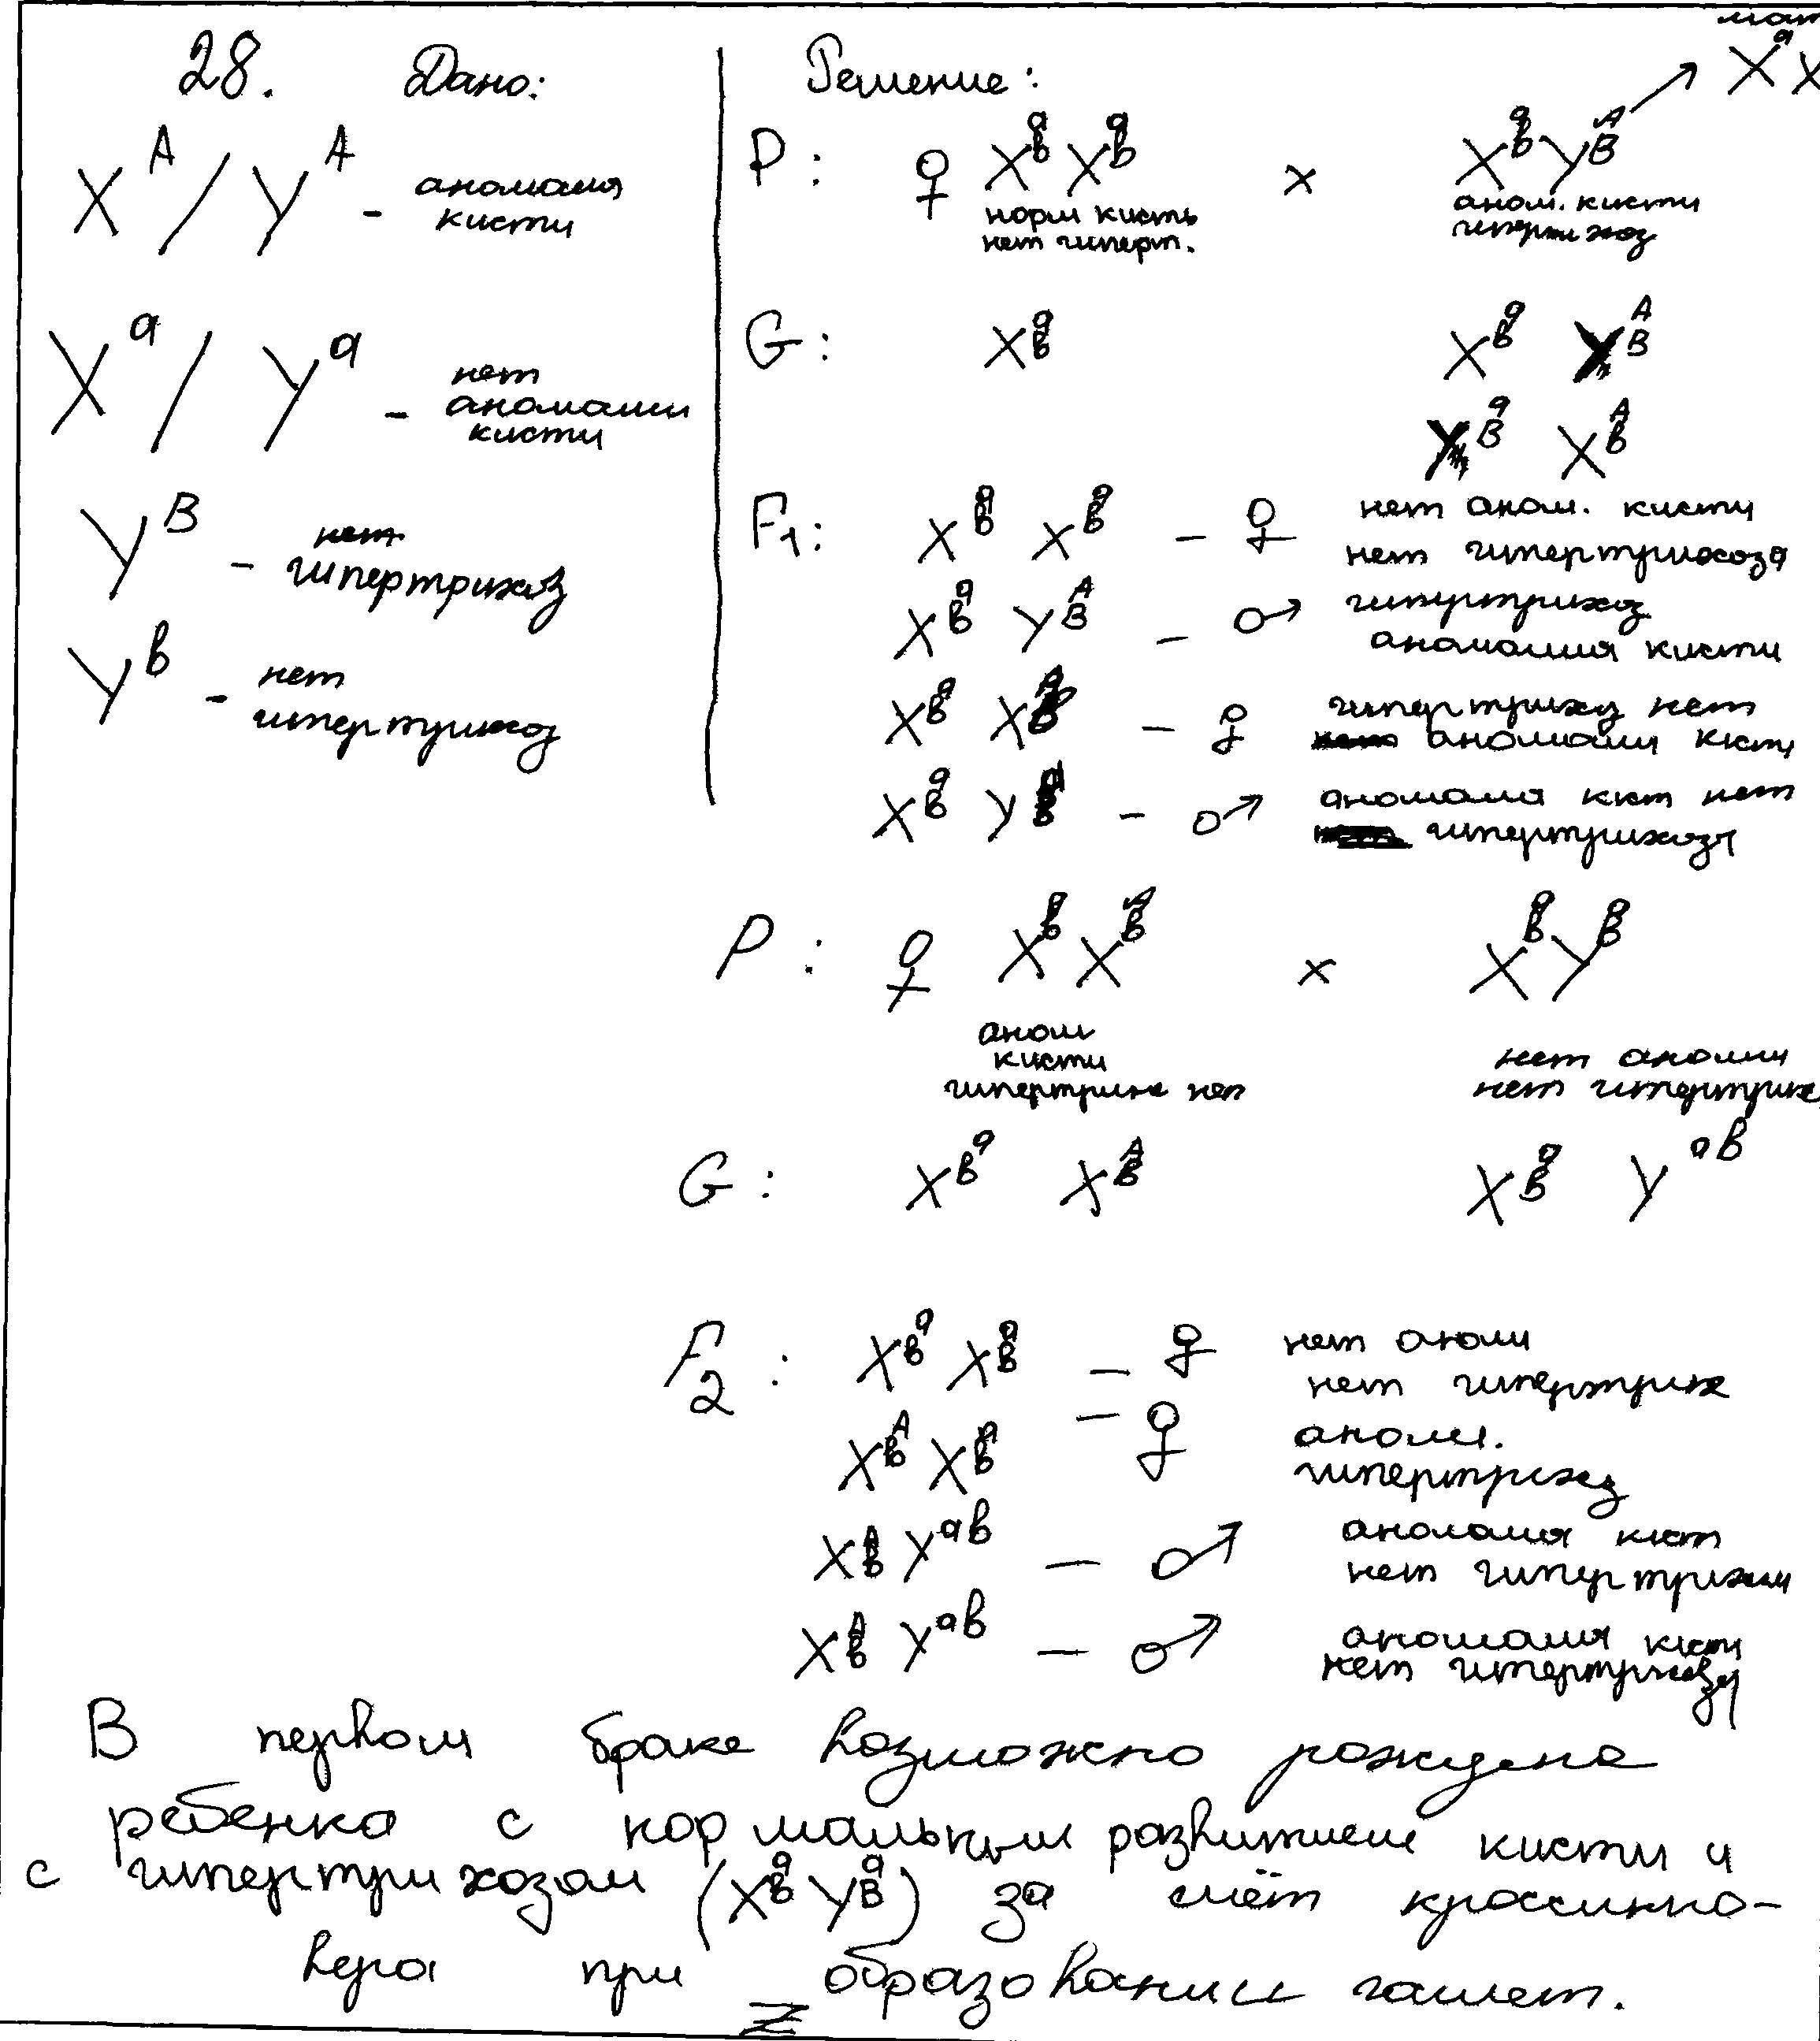 28. Дано:
X^A / Y^A - аномалия
кисти
X^a / Y^a - нет
аномалии
кисти
Y^B - гипертрихоз
Y^b - нет
гипертрихоз
Решение:
P: ♀ X^a_b X^a_b × X^a_b Y^A_B → X^a X
норм кисть аном. кисти
нет гиперт. гипертрихоз
G: X^a_b X^a_b Y^A_B
Y^a_B X^A_b
F1: X^a_b X^a_b - ♀ нет аном. кисти
нет гипертрихоза
X^a_b Y^A_B - ♂ гипертрихоз
аномалия кисти
X^a_b X^A_b - ♀ гипертрихоз нет
аномалии кисти
X^a_b Y^a_B - ♂ аномалия кист нет
гипертрихозя
P: ♀ X^a_b X^A_b × X^a_b Y^a_B
аном
кисти нет аномии
гипертрихе нет нет гипертрихе
G: X^a_b X^A_b X^a_b Y^ab
F2: X^a_b X^a_b - ♀ нет аном
нет гипертрихе
X^A_b X^a_b - ♀ аном.
гипертрихоз
X^A_b Y^ab - ♂ аномалия кист
нет гипертрихии
X^A_b Y^ab - ♂ аномалия кисти
нет гипертрихозя
В первом браке возможно рождена
ребенка с нормальным развитием кисти и
с гипертрихозом (X^a_b Y^a_B) за счёт кроссинго-
вера при образовании гамет.
Z